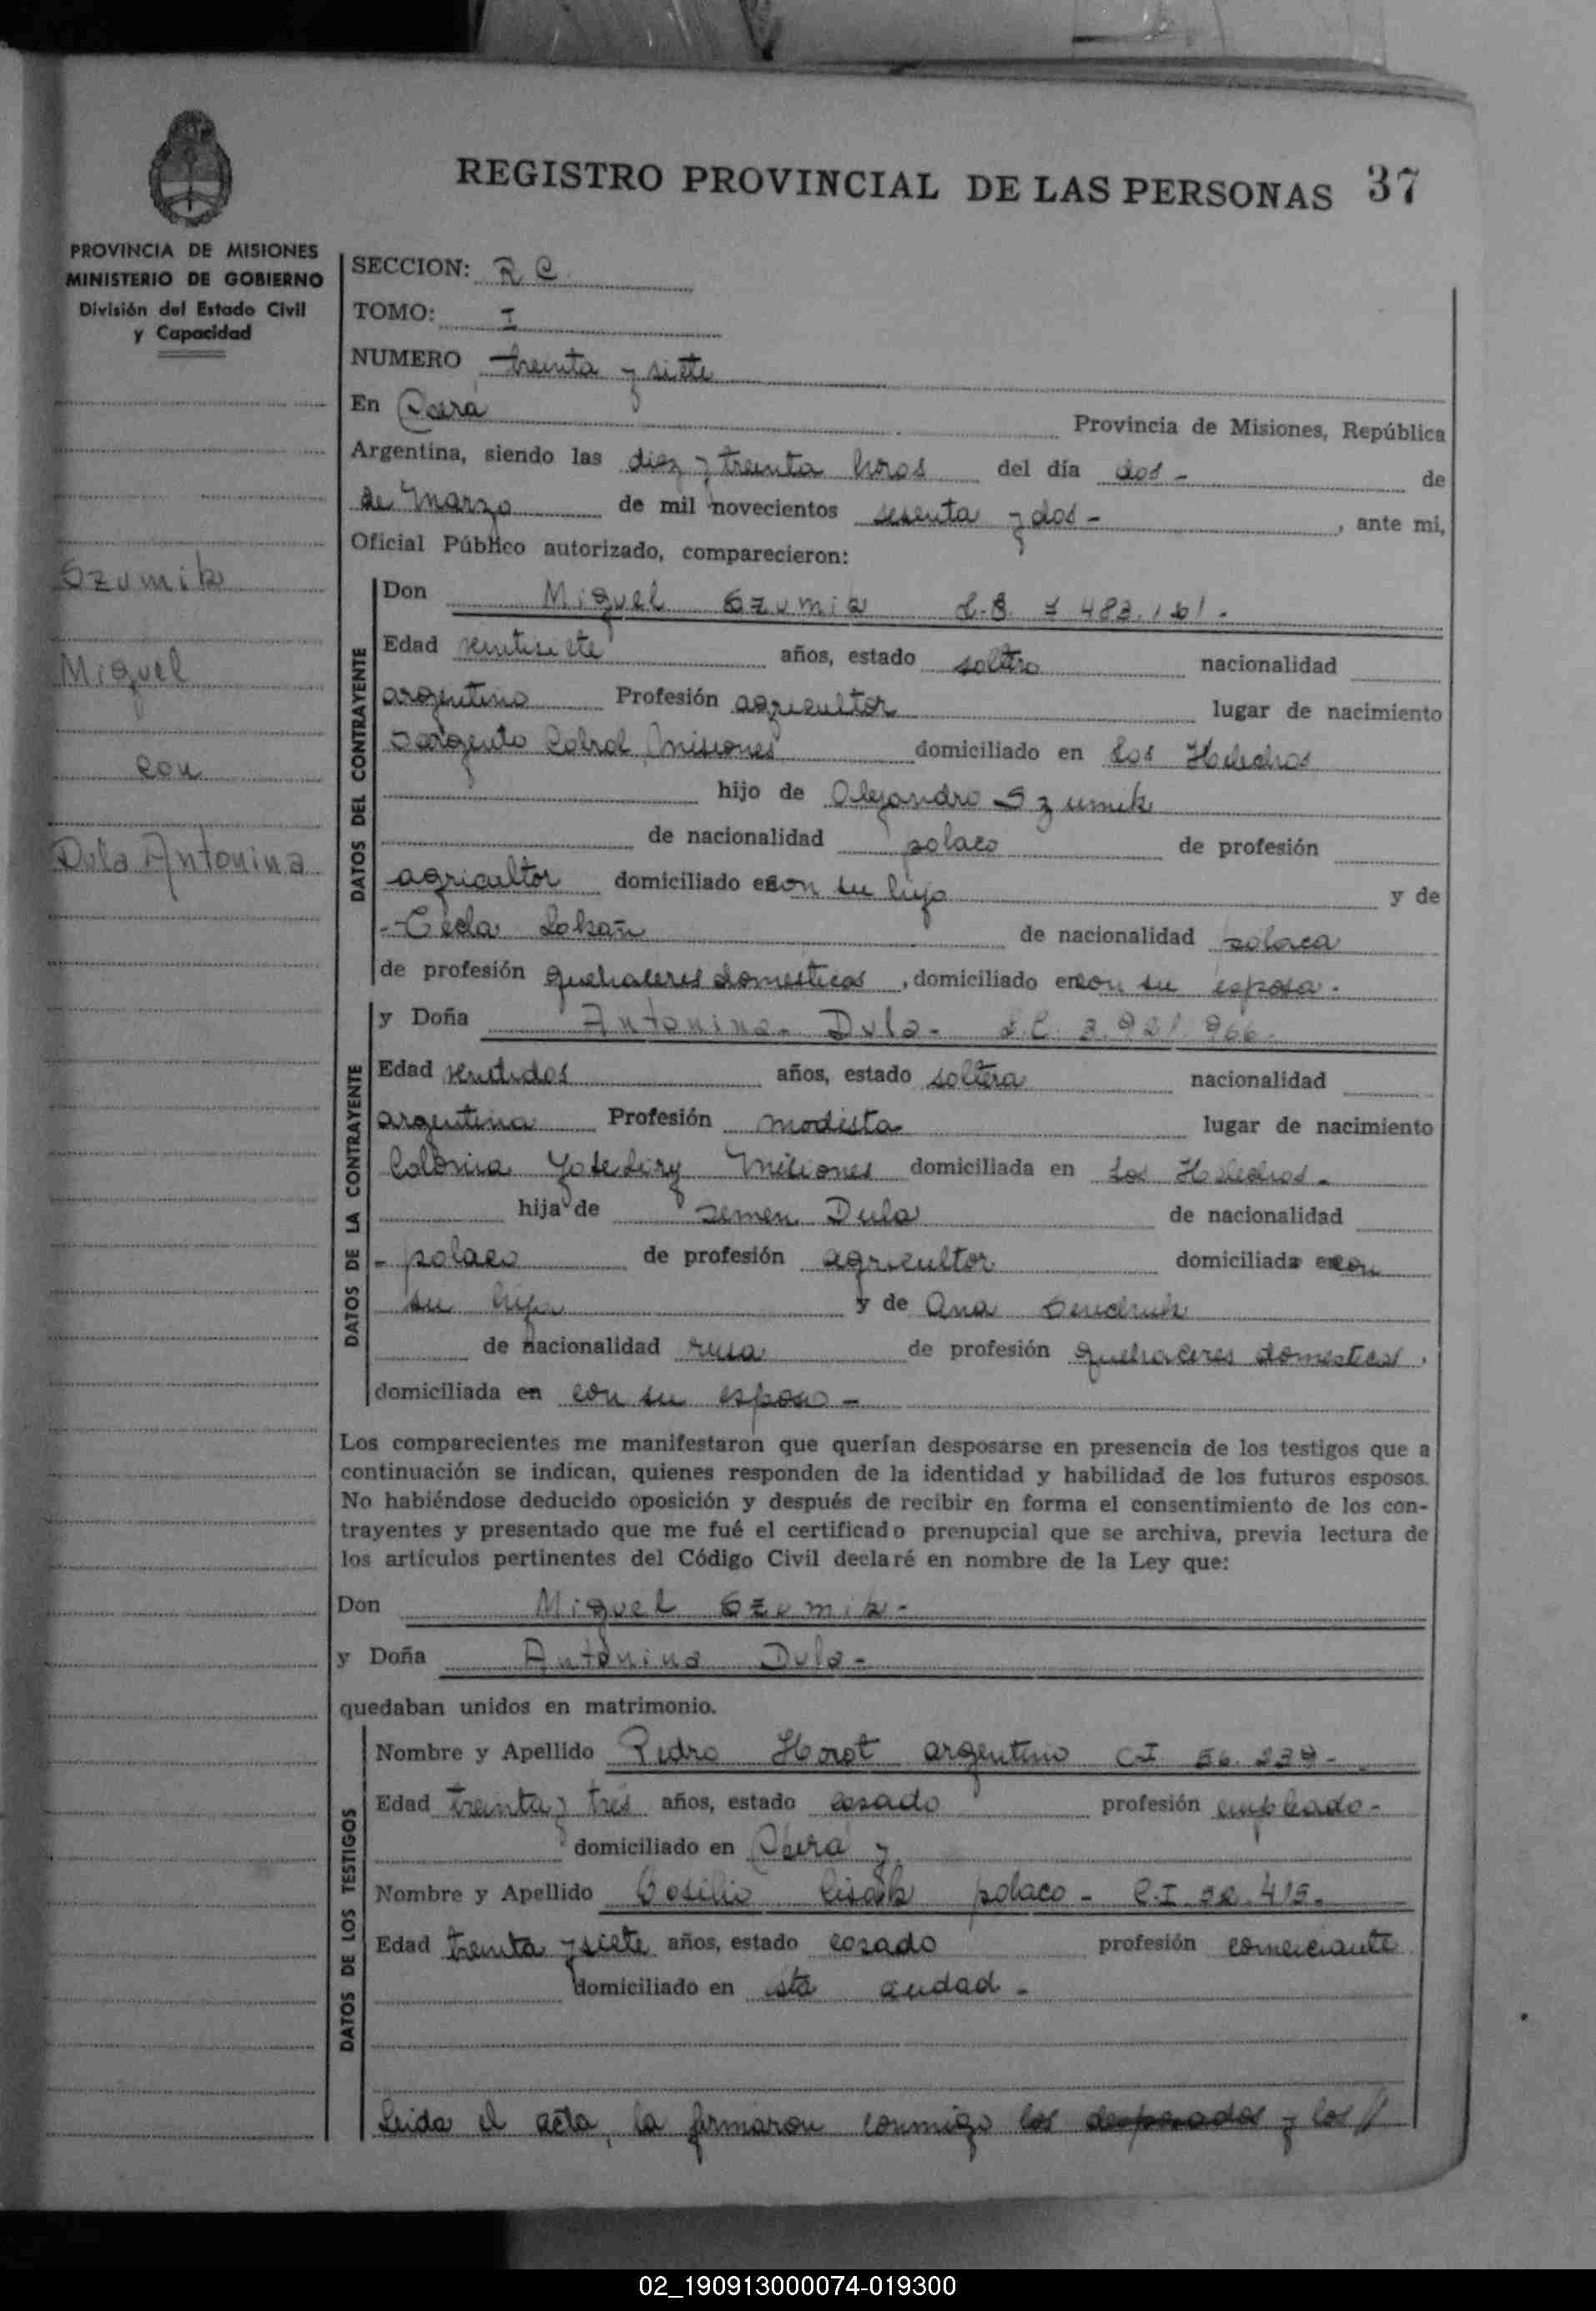 REGISTRO PROVINCIAL DE LAS PERSONAS 37
PROVINCIA DE MISIONES
MINISTERIO DE GOBIERNO
División del Estado Civil
y Capacidad
Szumik
Miguel
con
Dula Antonina
SECCION: R C
TOMO: I
NUMERO treinta y siete
En Obera Provincia de Misiones, República
Argentina, siendo las diez y treinta horas del día dos - de
de Marzo de mil novecientos sesenta y dos - , ante mi,
Oficial Público autorizado, comparecieron:
DATOS DEL CONTRAYENTE
Don Miguel Szumik
Edad ventisiete años, estado soltero nacionalidad
argentino Profesión agricultor lugar de nacimiento
Sargento Cabral Misiones domiciliado en Los Helechos
hijo de Alejandro Szumik
de nacionalidad polaco de profesión
agricultor domiciliado con su hijo y de
de nacionalidad polaca
de profesión quehaceres domesticos , domiciliado con su esposa -
DATOS DE LA CONTRAYENTE
y Doña Antonina - Dula -
Edad vendidos años, estado soltera nacionalidad
argentina Profesión modista lugar de nacimiento
Colonia Misiones domiciliada en Los Helechos -
hija de Semen Dula de nacionalidad
- polaco de profesión agricultor domiciliada con
su hija y de Ana
de nacionalidad rusa de profesión quehaceres domesticos ,
domiciliada en con su esposo -
Los comparecientes me manifestaron que querían desposarse en presencia de los testigos que a
continuación se indican, quienes responden de la identidad y habilidad de los futuros esposos.
No habiéndose deducido oposición y después de recibir en forma el consentimiento de los con-
trayentes y presentado que me fué el certificado prenupcial que se archiva, previa lectura de
los artículos pertinentes del Código Civil declaré en nombre de la Ley que:
Don Miguel Szumik -
y Doña Antonina Dula -
quedaban unidos en matrimonio.
DATOS DE LOS TESTIGOS
Nombre y Apellido Pedro Horot argentino C.I 56.239 -
Edad treinta y tres años, estado casado profesión empleado -
domiciliado en Obera y
Nombre y Apellido Basilio polaco - C.I
Edad treinta y siete años, estado casado profesión comerciante
domiciliado en esta ciudad -
Leida el acta, la firmaron conmigo los desposados y los
02_190913000074-019300